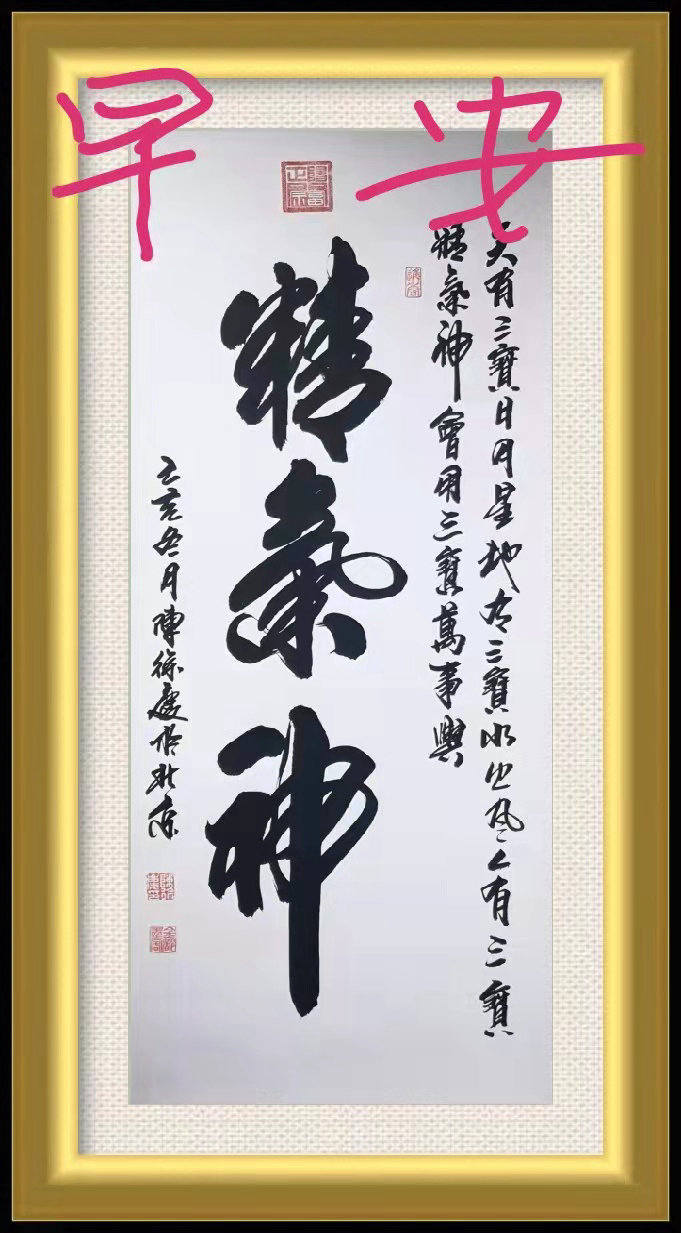 早安
天有三寶日月星地有三寶水火風人有三寶
精氣神會用三寶萬事興
精氣神
己亥冬月陳慶於北京